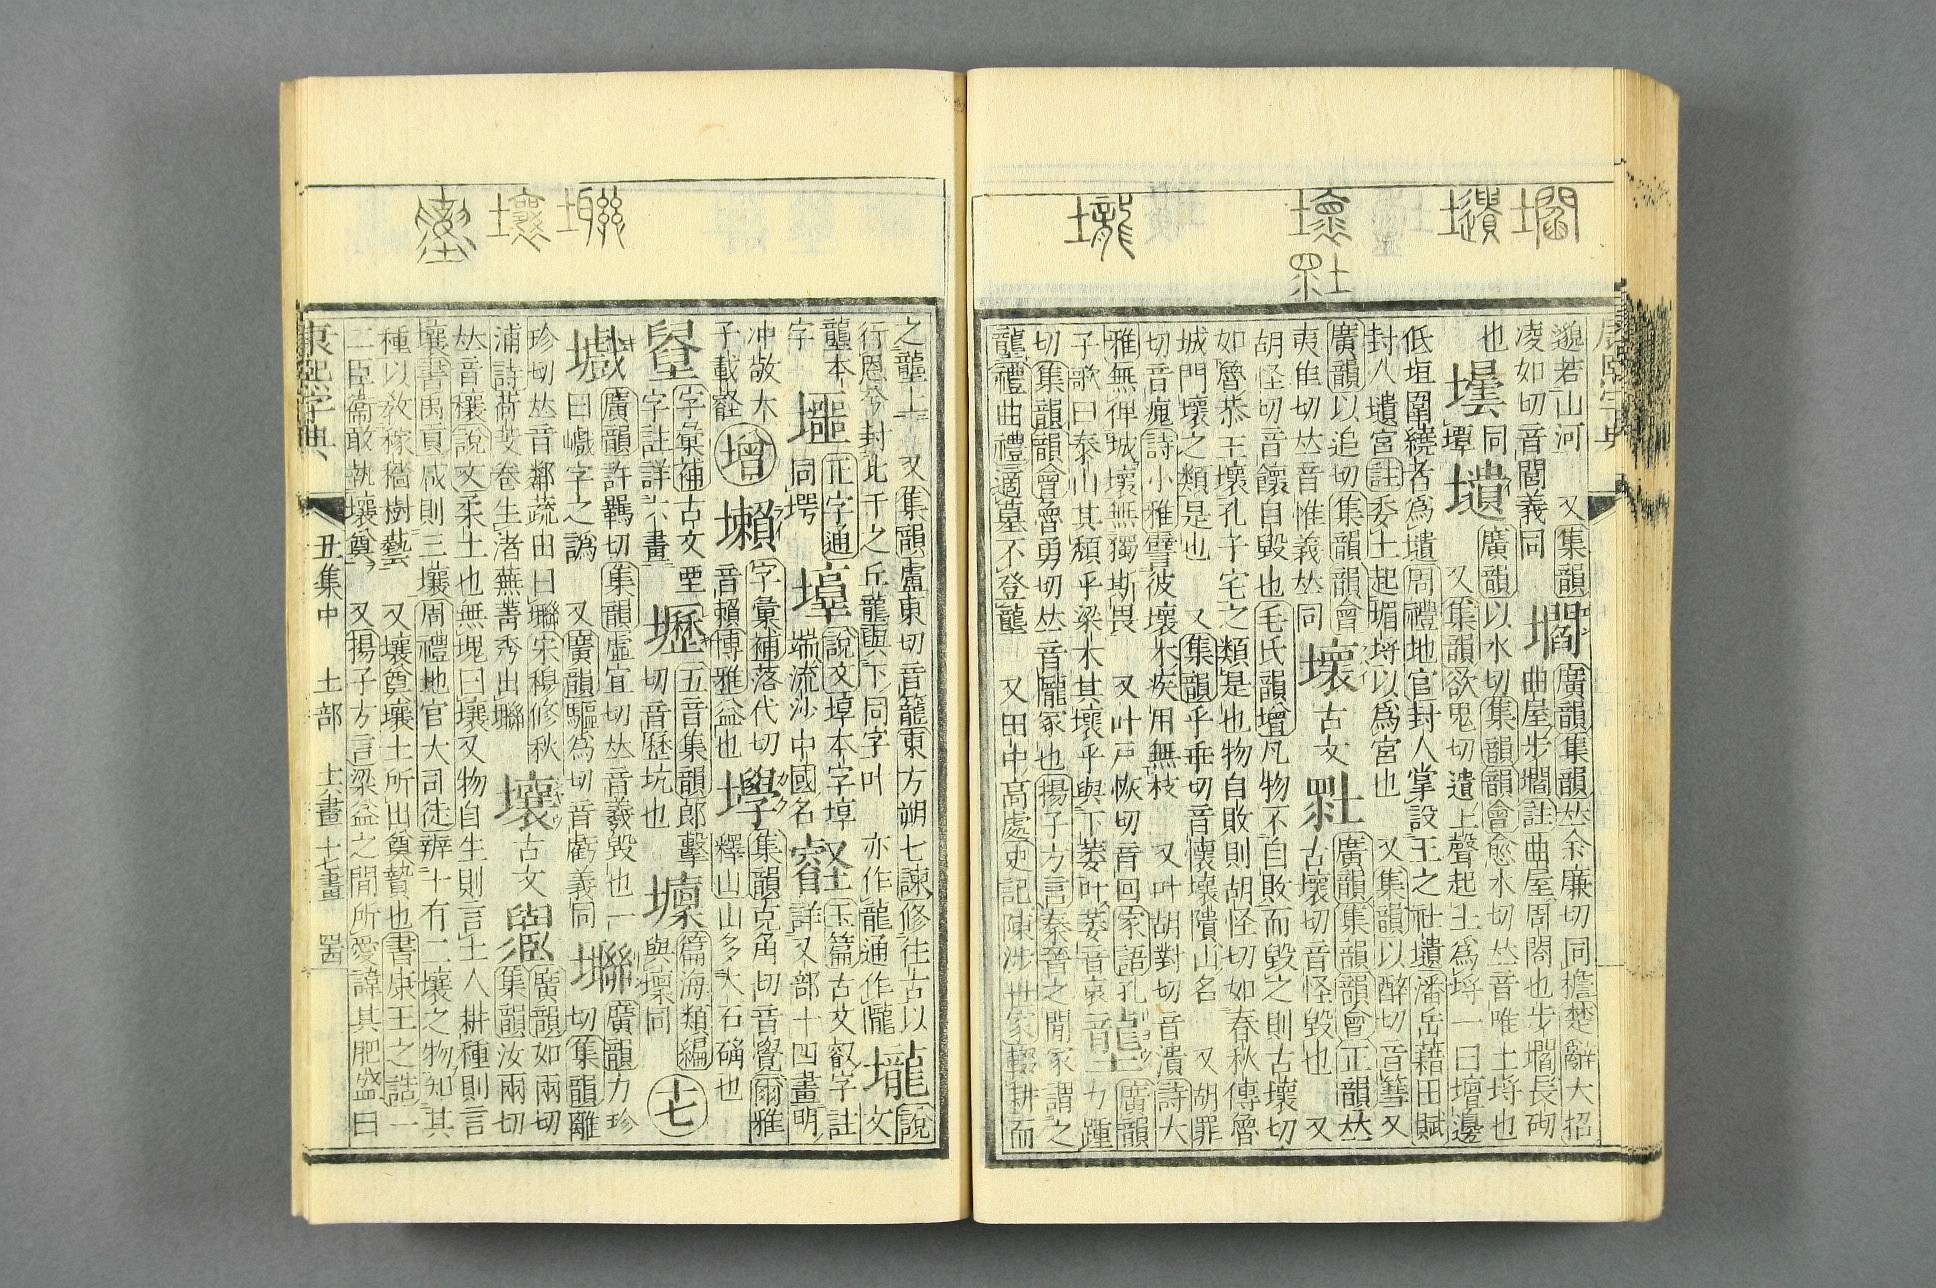 邈若山河 又集韻
壛 廣韻集韻𠀤余廉切同櫩楚辭大招
曲屋步壛註曲屋周閣也步壛長砌
凌如切音閻義同
也 壜 同罈 壝 廣韻以水切集韻韻會愈水切𠀤音唯土埒也
又集韻欲鬼切遺上聲起土爲埒一曰壇邊
低垣圍繞者爲壝周禮地官封人掌設王之社壝潘岳藉田賦
封人壝宮註委土起堳埒以爲宮也 又集韻以醉切音篲又
廣韻以追切集韻韻會 廣韻集韻韻會正韻𠀤
夷隹切𠀤音惟義𠀤同 壞 古文 𡊅 古壞切音怪毀也 又
胡怪切音饙自毀也毛氏韻增凡物不自敗而毀之則古壞切
如魯恭王壞孔子宅之類是也物自敗則胡怪切如春秋傳魯
城門壞之類是也 又集韻乎乖切音懷壞隤山名 又胡罪
切音瘣詩小雅譬彼壞木疾用無枝 又叶胡對切音潰詩大
雅無俾城壞無獨斯畏 又叶戸恢切音回家語孔
子歌曰泰山其頹乎梁木其壞乎與下萎叶萎音衰 壠 廣韻
力踵
切集韻韻會魯勇切𠀤音隴冢也揚子方言秦晉之閒冢謂之
壠禮曲禮適墓不登壠 又田中高處史記陳涉世家輟耕而
之壟上 又集韻盧東切音籠東方朔七諫修往古以
行恩兮封比干之丘壠與下同字叶 亦作龍通作隴 壠 說文
壟本
字 壥 正字通 同堮 𡑣 說文 埻本字埻 端流沙中國名 壡 玉篇古文叡字註 詳又部十四畫明
冲敞木
子載壑 增 壈 字彙補落代切 音賴博雅益也 壆 集韻克角切音覺爾雅 釋山山多大石礐也
字彙補古文堊
字註詳六畫 壢 五音集韻郎擊 切音歷坑也 壈 篇海類編 與壈同 十七
廣韻許羈切集韻虛宜切𠀤音羲毀也一
曰巇字之譌 又廣韻驅爲切音虧義同 𡓳 廣韻力珍 切集韻離
珍切𠀤音鄰蔬田曰𡓳宋穆修秋
浦詩荷芰卷生渚蕪菁秀出𡓳 壤 古文 廣韻如兩切 集韻汝兩切
𠀤音穰說文柔土也無塊曰壤又物自生則言土人耕種則言
壤書禹貢咸則三壤周禮地官大司徒辨十有二壤之物知其
種以敎稼穡樹藝 又壤奠壤土所出奠贄也書康王之誥一
二臣衞敢執壤奠 又揚子方言梁益之閒所愛諱其肥盛曰
康熙字典 丑集中 土部 十六畫 十七畫